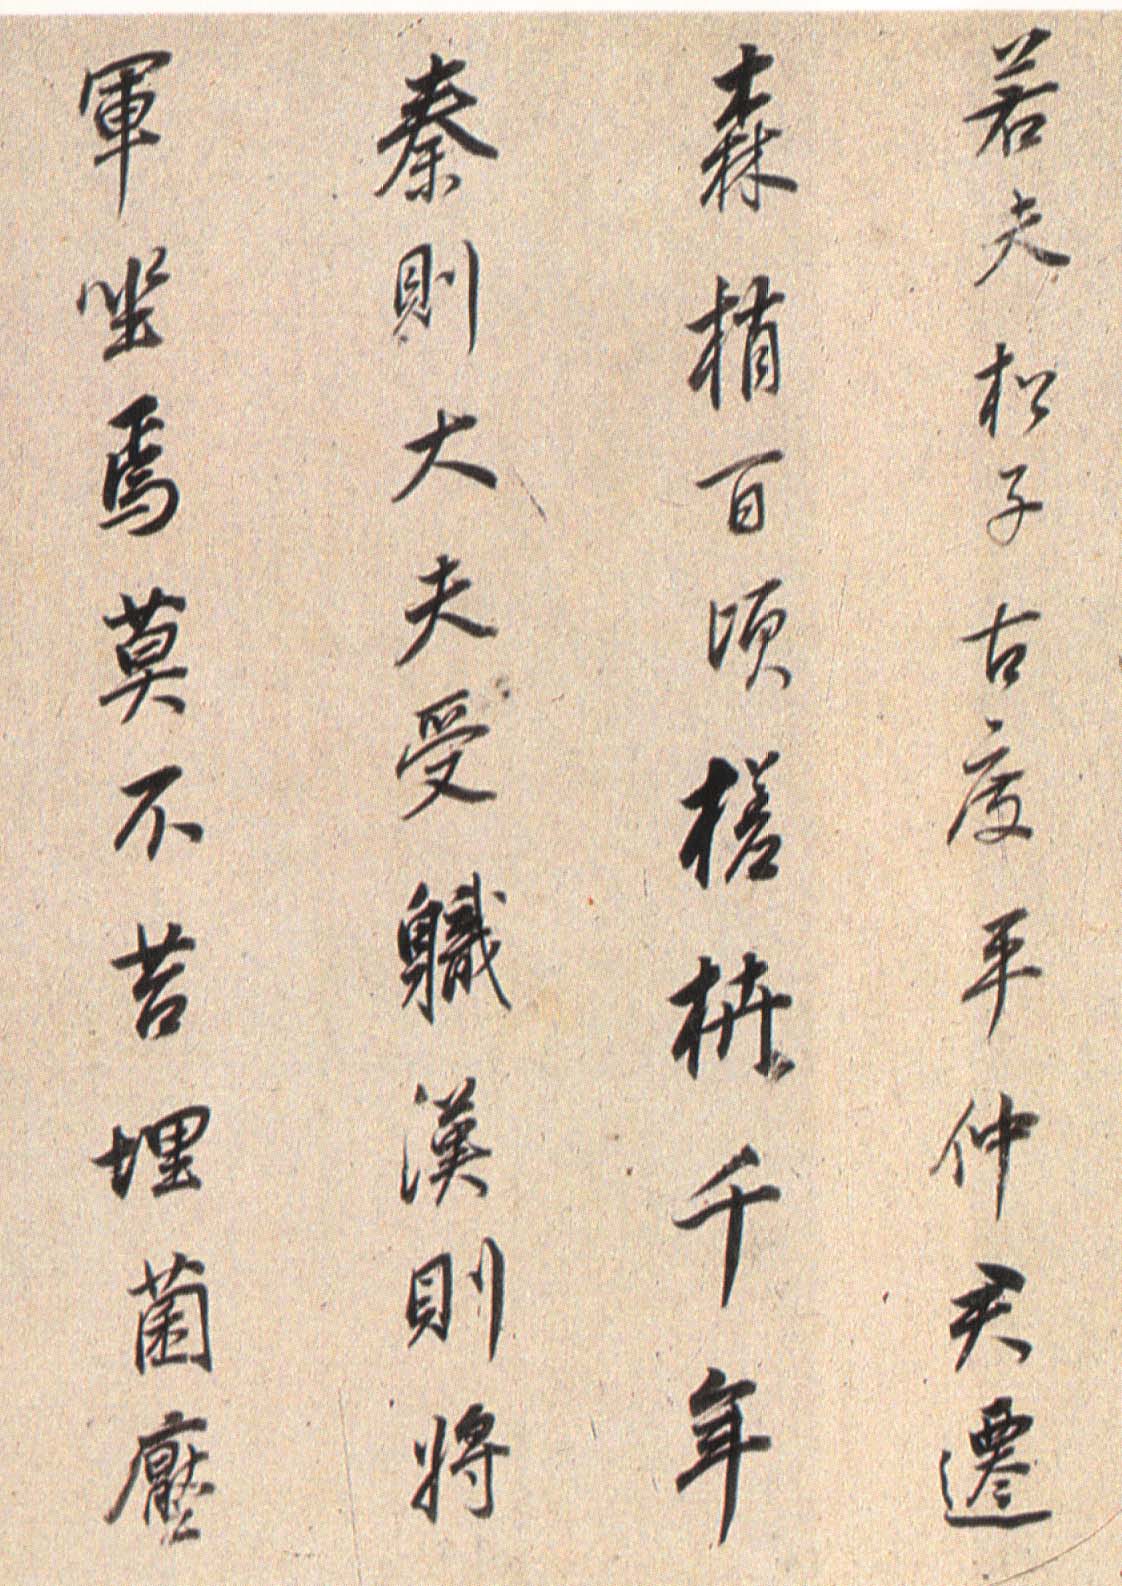 若夫松子古度平仲君遷
森梢百頃槎枿千年
秦則大夫受軄漢則將
軍坐焉莫不苔埋菌壓